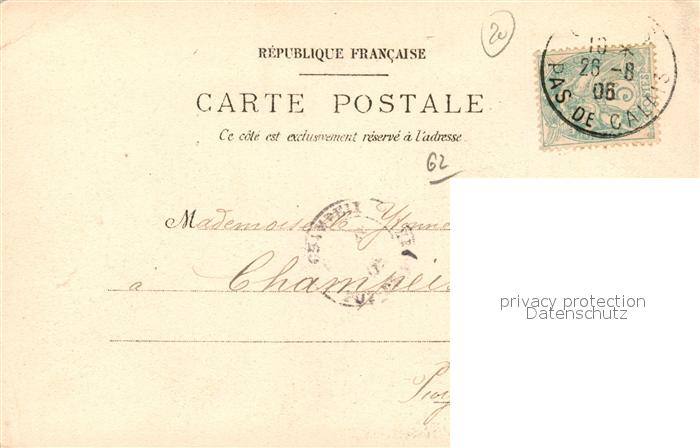 20
RÉPUBLIQUE FRANÇAISE
CARTE POSTALE
Ce côté est exclusivement réservé à l'adresse
26 -8
06
PAS DE CALAIS
62
Mademoiselle Yvonne
à Champeix
privacy protection
Datenschutz
Puy